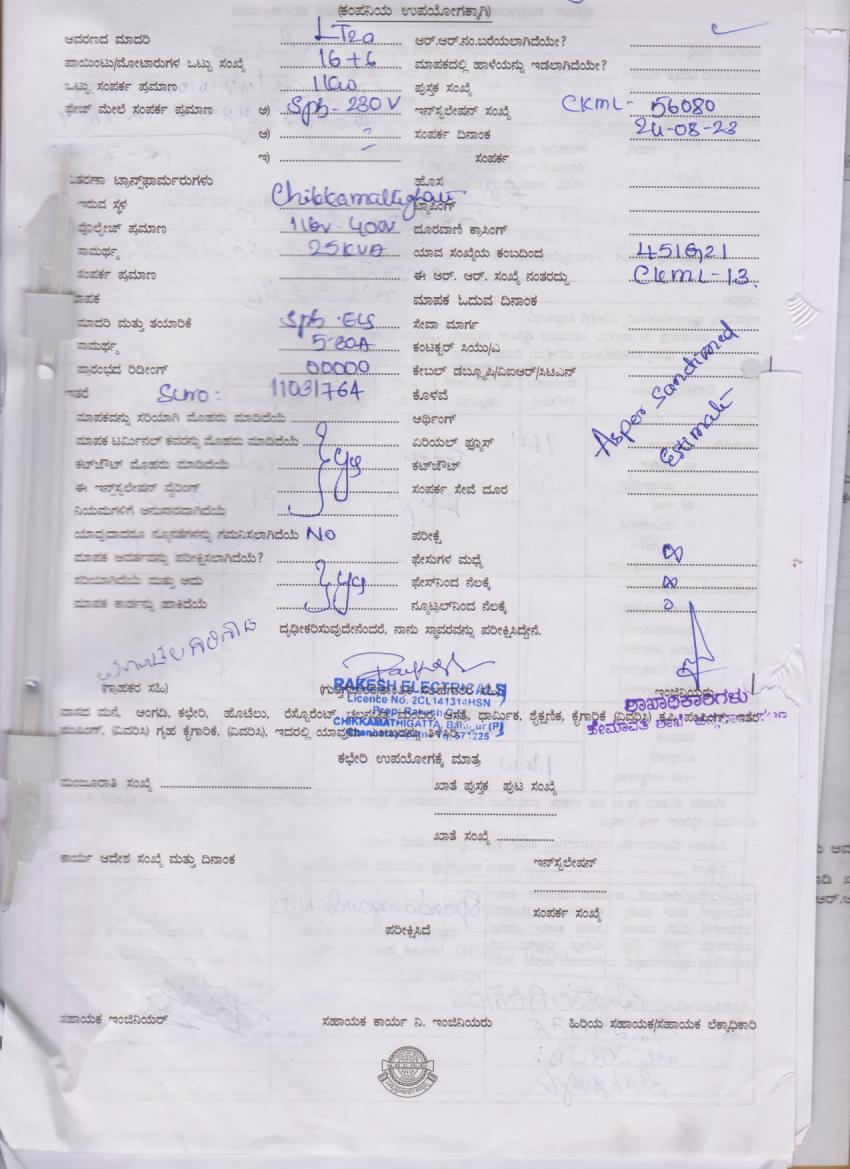 (ಕಂಪನಿಯ ಉಪಯೋಗಕ್ಕಾಗಿ)
ಆವರಣದ ಮಾದರಿ LT2a ಆರ್.ಆರ್.ನಂ.ಬರೆಯಲಾಗಿದೆಯೇ?
ಪಾಯಿಂಟು/ಮೋಟಾರುಗಳ ಒಟ್ಟು ಸಂಖ್ಯೆ 16+6 ಮಾಪಕದಲ್ಲಿ ಹಾಳೆಯನ್ನು ಇಡಲಾಗಿದೆಯೇ?
ಒಟ್ಟು ಸಂಪರ್ಕ ಪ್ರಮಾಣ ಪುಸ್ತಕ ಸಂಖ್ಯೆ
ಫೇಜ್ ಮೇಲೆ ಸಂಪರ್ಕ ಪ್ರಮಾಣ ಅ) Sph- 230V ಇನ್‌ಸ್ಟಲೇಷನ್ ಸಂಖ್ಯೆ CKML- 56080
ಆ) ಸಂಪರ್ಕ ದಿನಾಂಕ 24-08-23
ಇ) ಸಂಪರ್ಕ
ವಿತರಣಾ ಟ್ರಾನ್ಸ್‌ಫಾರ್ಮರುಗಳು ಹೊಸ
ಇರುವ ಸ್ಥಳ ಟ್ಯಾಪಿಂಗ್
ವೋಲ್ಟೇಜ್ ಪ್ರಮಾಣ 11kv- 400v ದೂರವಾಣಿ ಕ್ರಾಸಿಂಗ್
ಸಾಮರ್ಥ್ಯ 25KVA ಯಾವ ಸಂಖ್ಯೆಯ ಕಂಬದಿಂದ
ಸಂಪರ್ಕ ಪ್ರಮಾಣ ಈ ಆರ್. ಆರ್. ಸಂಖ್ಯೆ ನಂತರದ್ದು CKML-13
ಮಾಪಕ ಮಾಪಕ ಓದುವ ದಿನಾಂಕ
ಮಾದರಿ ಮತ್ತು ತಯಾರಿಕೆ Sph- ELS ಸೇವಾ ಮಾರ್ಗ
ಸಾಮರ್ಥ್ಯ ಕಂಟಕ್ಟರ್ ಸಿಯು/ಎ
ಪ್ರಾರಂಭದ ರಿಡೀಂಗ್ 00000 ಕೇಬಲ್ ಡಬ್ಲ್ಯೂಪಿ/ವಿಐಆರ್/ಸಿಟಿಎನ್
ಇತರೆ Slno: 11031764 ಕೊಳವೆ
ಮಾಪಕವನ್ನು ಸರಿಯಾಗಿ ಮೊಹರು ಮಾಡಿದೆಯೆ ಅರ್ಥಿಂಗ್
ಮಾಪಕ ಟರ್ಮಿನಲ್ ಕವರನ್ನು ಮೊಹರು ಮಾಡಿದೆಯೆ ಏರಿಯಲ್ ಫ್ಯೂಸ್
ಕಟ್‌ಔಟ್ ಮೊಹರು ಮಾಡಿದೆಯೆ ಕಟ್‌ಔಟ್
ಈ ಇನ್‌ಸ್ಟಲೇಷನ್ ವೈರಿಂಗ್ ಸಂಪರ್ಕ ಸೇವೆ ದೂರ
ನಿಯಮಗಳಿಗೆ ಅನುಸಾರವಾಗಿದೆಯೆ yes
Asper Sanctioned
Estimate
ಯಾವುದಾದರೂ ನ್ಯೂನತೆಗಳನ್ನು ಗಮನಿಸಲಾಗಿದೆಯೆ No ಪರೀಕ್ಷೆ
ಮಾಪಕ ಆವರ್ತವನ್ನು ಪರೀಕ್ಷಿಸಲಾಗಿದೆಯೆ? ಫೇಸುಗಳ ಮಧ್ಯೆ ∞
ಸರಿಯಾಗಿದೆಯೆ ಮತ್ತು ಅದು yes ಫೇಸ್‌ನಿಂದ ನೆಲಕ್ಕೆ ∞
ಮಾಪಕ ಕಾರ್ಡನ್ನು ಹಾಕಿದೆಯೆ ನ್ಯೂಟ್ರಲ್‌ನಿಂದ ನೆಲಕ್ಕೆ 0
ದೃಢೀಕರಿಸುವುದೇನೆಂದರೆ, ನಾನು ಸ್ಥಾವರವನ್ನು ಪರೀಕ್ಷಿಸಿದ್ದೇನೆ.
(ಗ್ರಾಹಕರ ಸಹಿ) ಇಂಜಿನಿಯರು
RAKESH ELECTRICALS
Licence No. 2CL141314HSN
CHIKKAMATHIGATTA
ಶಾಖಾಧಿಕಾರಿಗಳು
ಹೇಮಾವತಿ ಶಾಖೆ
ವಾಸದ ಮನೆ, ಅಂಗಡಿ, ಕಛೇರಿ, ಹೊಟೆಲು, ರೆಸ್ಟೊರೆಂಟ್, ಧಾರ್ಮಿಕ, ಶೈಕ್ಷಣಿಕ, ಕೈಗಾರಿಕೆ (ವಿವರಿಸಿ)
ಪಂಪಿಂಗ್, (ವಿವರಿಸಿ) ಗೃಹ ಕೈಗಾರಿಕೆ, (ವಿವರಿಸಿ), ಇದರಲ್ಲಿ
ಕಛೇರಿ ಉಪಯೋಗಕ್ಕೆ ಮಾತ್ರ
ಮಂಜೂರಾತಿ ಸಂಖ್ಯೆ ಖಾತೆ ಪುಸ್ತಕ ಪುಟ ಸಂಖ್ಯೆ
ಖಾತೆ ಸಂಖ್ಯೆ
ಕಾರ್ಯ ಆದೇಶ ಸಂಖ್ಯೆ ಮತ್ತು ದಿನಾಂಕ ಇನ್‌ಸ್ಟಲೇಷನ್
ಸಂಪರ್ಕ ಸಂಖ್ಯೆ
ಪರೀಕ್ಷಿಸಿದೆ
ಸಹಾಯಕ ಇಂಜಿನಿಯರ್ ಸಹಾಯಕ ಕಾರ್ಯ ನಿ. ಇಂಜಿನಿಯರು ಹಿರಿಯ ಸಹಾಯಕ/ಸಹಾಯಕ ಲೆಕ್ಕಾಧಿಕಾರಿ